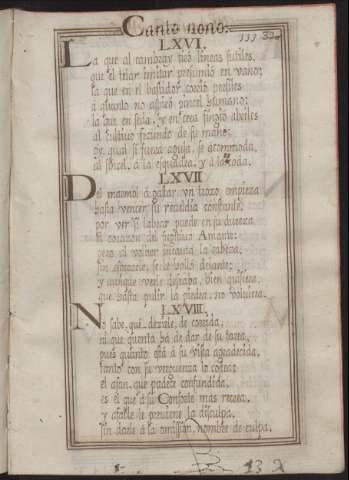 Canto nono.
LXVI.
La que al cambray tiró lineas sutiles,
que el telar imitar presumió en vano;
la que en el bastidor cosió perfiles
á quanto no aspiró pincel humano;
la que en seda, y en cera fingió abriles
al cultivo fecundo de su mano;
oy, qual si fuera aguja, se acommoda,
al sincel, á la esquadra, y á la
LXVII
Del marmol á gastar vn trozo empieza
hasta vencer su rebeldia constante,
por ver si labrar puede en su dureza
el corazon del fugitivo Amante;
pero al volver incauta la cabeza,
sin conocerle, se le halló delante;
y aunque verle deseaba, bien quisiera,
que hasta pulir la piedra, no volviera.
LXVIII.
No sabe, qué dezirle, de corrida,
ni que quenta há de dar de su tarea,
pues quanto está á su vista agradecida,
tanto con su verguenza lo
el afan, que padece confundida,
es el que á su Consorte más recrea,
y afable le previene la disculpa,
sin darle á la omission, nombre de culpa.